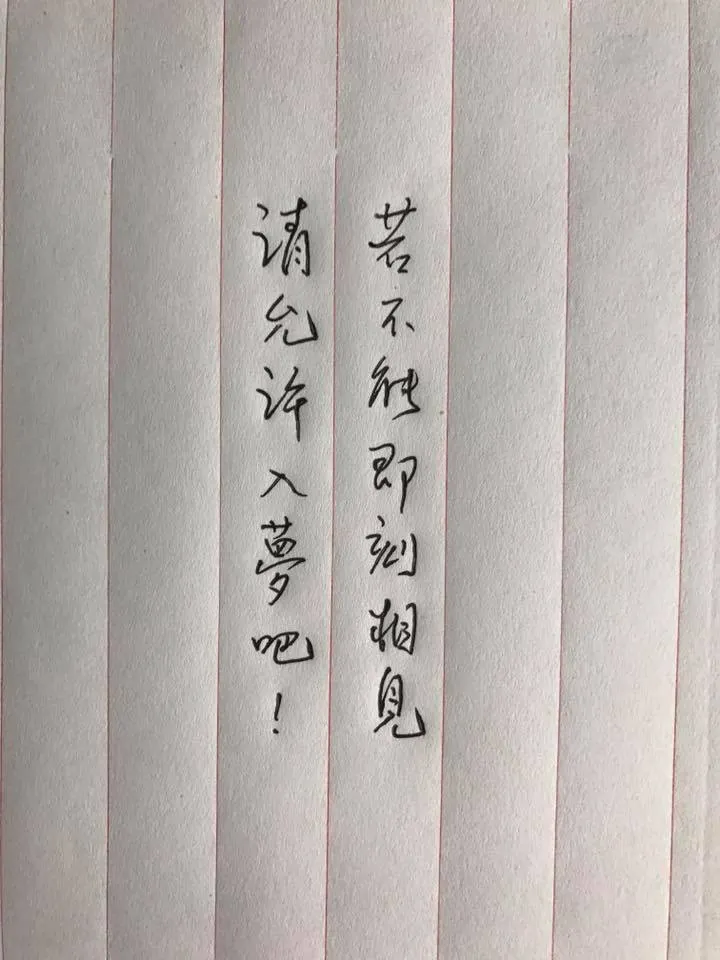 若不能即刻相見
请允许入夢吧！